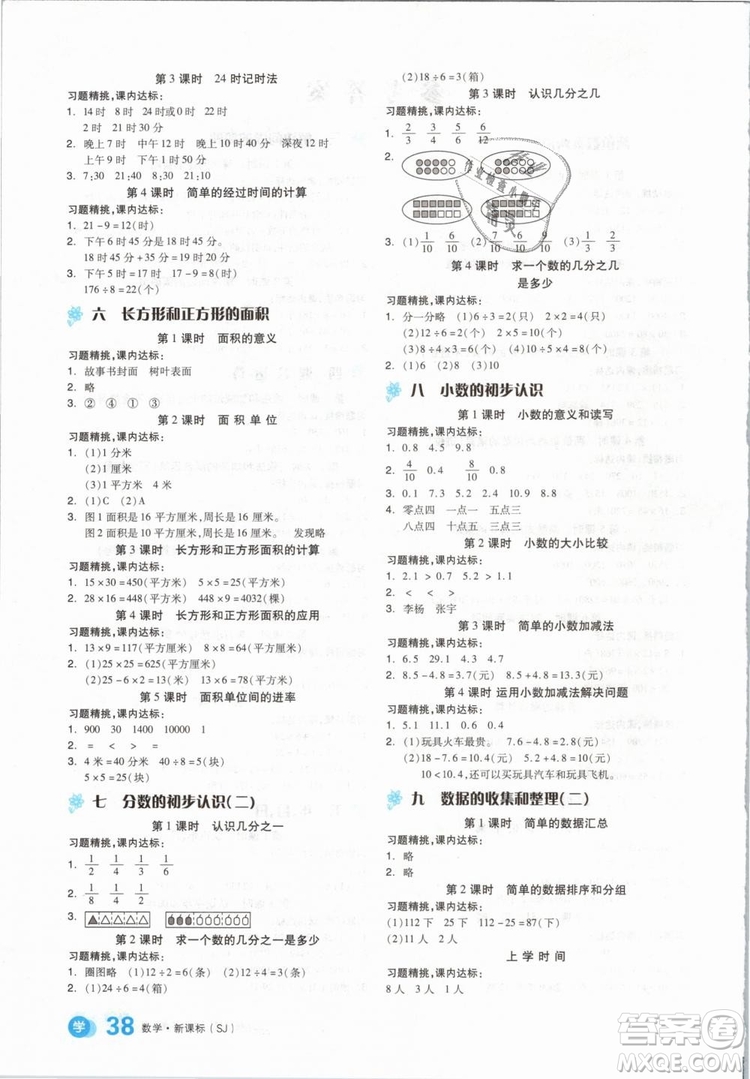 第 3 课时 24 时记时法
习题精挑,课内达标:
1. 14 时 8 时 24 时或 0 时 22 时
2 时 21 时 30 分
2. 晚上 7 时 中午 12 时 晚上 9 时 深夜 12 时
上午 9 时 下午 1 时 50 分
3. 7:30 20:40 21:30
第 4 课时 简单的经过时间的计算
习题精挑,课内达标:
1. 21-9=12(时)
2. 下午 6 时 45 分是 18 时 45 分。
18 时 45 分+3 时=21 时 45 分
3. 下午 5 时是 17 时。 17-9=8(时)
176÷8=22(个)
六 长方形和正方形的面积
第 1 课时 面积的意义
习题精挑,课内达标:
1. 故事书封面 树叶表面
2. 略
3. ② ④ ① ③
第 2 课时 面积单位
习题精挑,课内达标:
1. (1)1 分米
(2)1 厘米
(3)1 平方米 4 米
2. (1)C (2)A
3. 图 1 面积是 16 平方厘米,周长是 16 厘米。
图 2 面积是 10 平方厘米,周长是 16 厘米。 发现略
第 3 课时 长方形和正方形面积的计算
习题精挑,课内达标:
1. 15×30=450(平方米) 5×5=25(平方米)
2. 28×16=448(平方米) 448×9=4032(棵)
第 4 课时 长方形和正方形面积的应用
习题精挑,课内达标:
1. 13×9=117(平方厘米) 8×8=64(平方厘米)
2. (1)25×25=625(平方米)
(2)15-2=13(米) 8-2=6(米) 2×6=12(米)
13×2=26(米) 12+26=38(米)
第 5 课时 面积单位间的进率
习题精挑,课内达标:
1. 900 30 1400 10000 1
2. = < > =
3. 4 米=40 分米 40÷8=5(块)
5×5=25(块)
七 分数的初步认识(二)
第 1 课时 认识几分之一
习题精挑,课内达标:
1. 1/2 1/4 1/3 1/4
2. 1/8 1/4 1/2
3.
第 2 课时 求一个数的几分之一是多少
习题精挑,课内达标:
1. 圈图略 (1)12÷2=6(条) (2)12÷4=3(条)
2. (1)12÷6=2(箱)
学 38 数学·新课标(SJ)
(2)18÷6=3(箱)
第 3 课时 认识几分之几
习题精挑,课内达标:
1. 2/3 3/4 4/5 6/12
2.
3. (1)1/10 6/10 9/10 (3)1/3 2/3
第 4 课时 求一个数的几分之几
是多少
习题精挑,课内达标:
1. 分一分略 (1)6÷3=2 2×2=4
(2)10÷5=2 2×5=10
(3)8÷4=2 2×3=6
2. (1)6 (2)8 (3)8 10
八 小数的初步认识
第 1 课时 小数的意义和读写
习题精挑,课内达标:
1. 0.8 4.5 9.8
2. 4/10 0.4 8/10 0.8
3. 0.4 1.2 2.5 3.9 4.7
4. 零点四 一点一 五点三
八点四 十点五 三点三
第 2 课时 小数的大小比较
习题精挑,课内达标:
1. 2.1 > 0.7 5.2 > 1.7
2. < < >
3. 李杨 张宇
第 3 课时 简单的小数加减法
习题精挑,课内达标:
1. 6.5 29.1 4.9 4.6
2. (1)8.5-4.8=3.7(元) 8.5+4.8=13.3(元)
第 4 课时 运用小数加减法解决问题
习题精挑,课内达标:
1. 5.1 11.1 0.6 0.4
2. (1)玩具火车最贵。 7.6-4.8=2.8(元)
(2)18-7.6=10.4(元) 5.2+4.8=10(元)
10<10.4,还可以买玩具汽车和玩具飞机。
九 数据的收集和整理(二)
第 1 课时 简单的数据汇总
习题精挑,课内达标:
1. 略
2. 略
第 2 课时 简单的数据排序和分组
习题精挑,课内达标:
(1)112 下 25 下 112-25=87(下)
(2)11 人 2 人 2 人
上学时间
习题精挑,课内达标:
8 人 3 人 4 人
作业检查小
精灵
答案圈
MXQE.COM